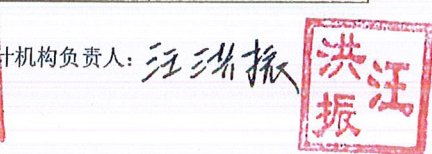 计机构负责人：汪洪振
汪洪振